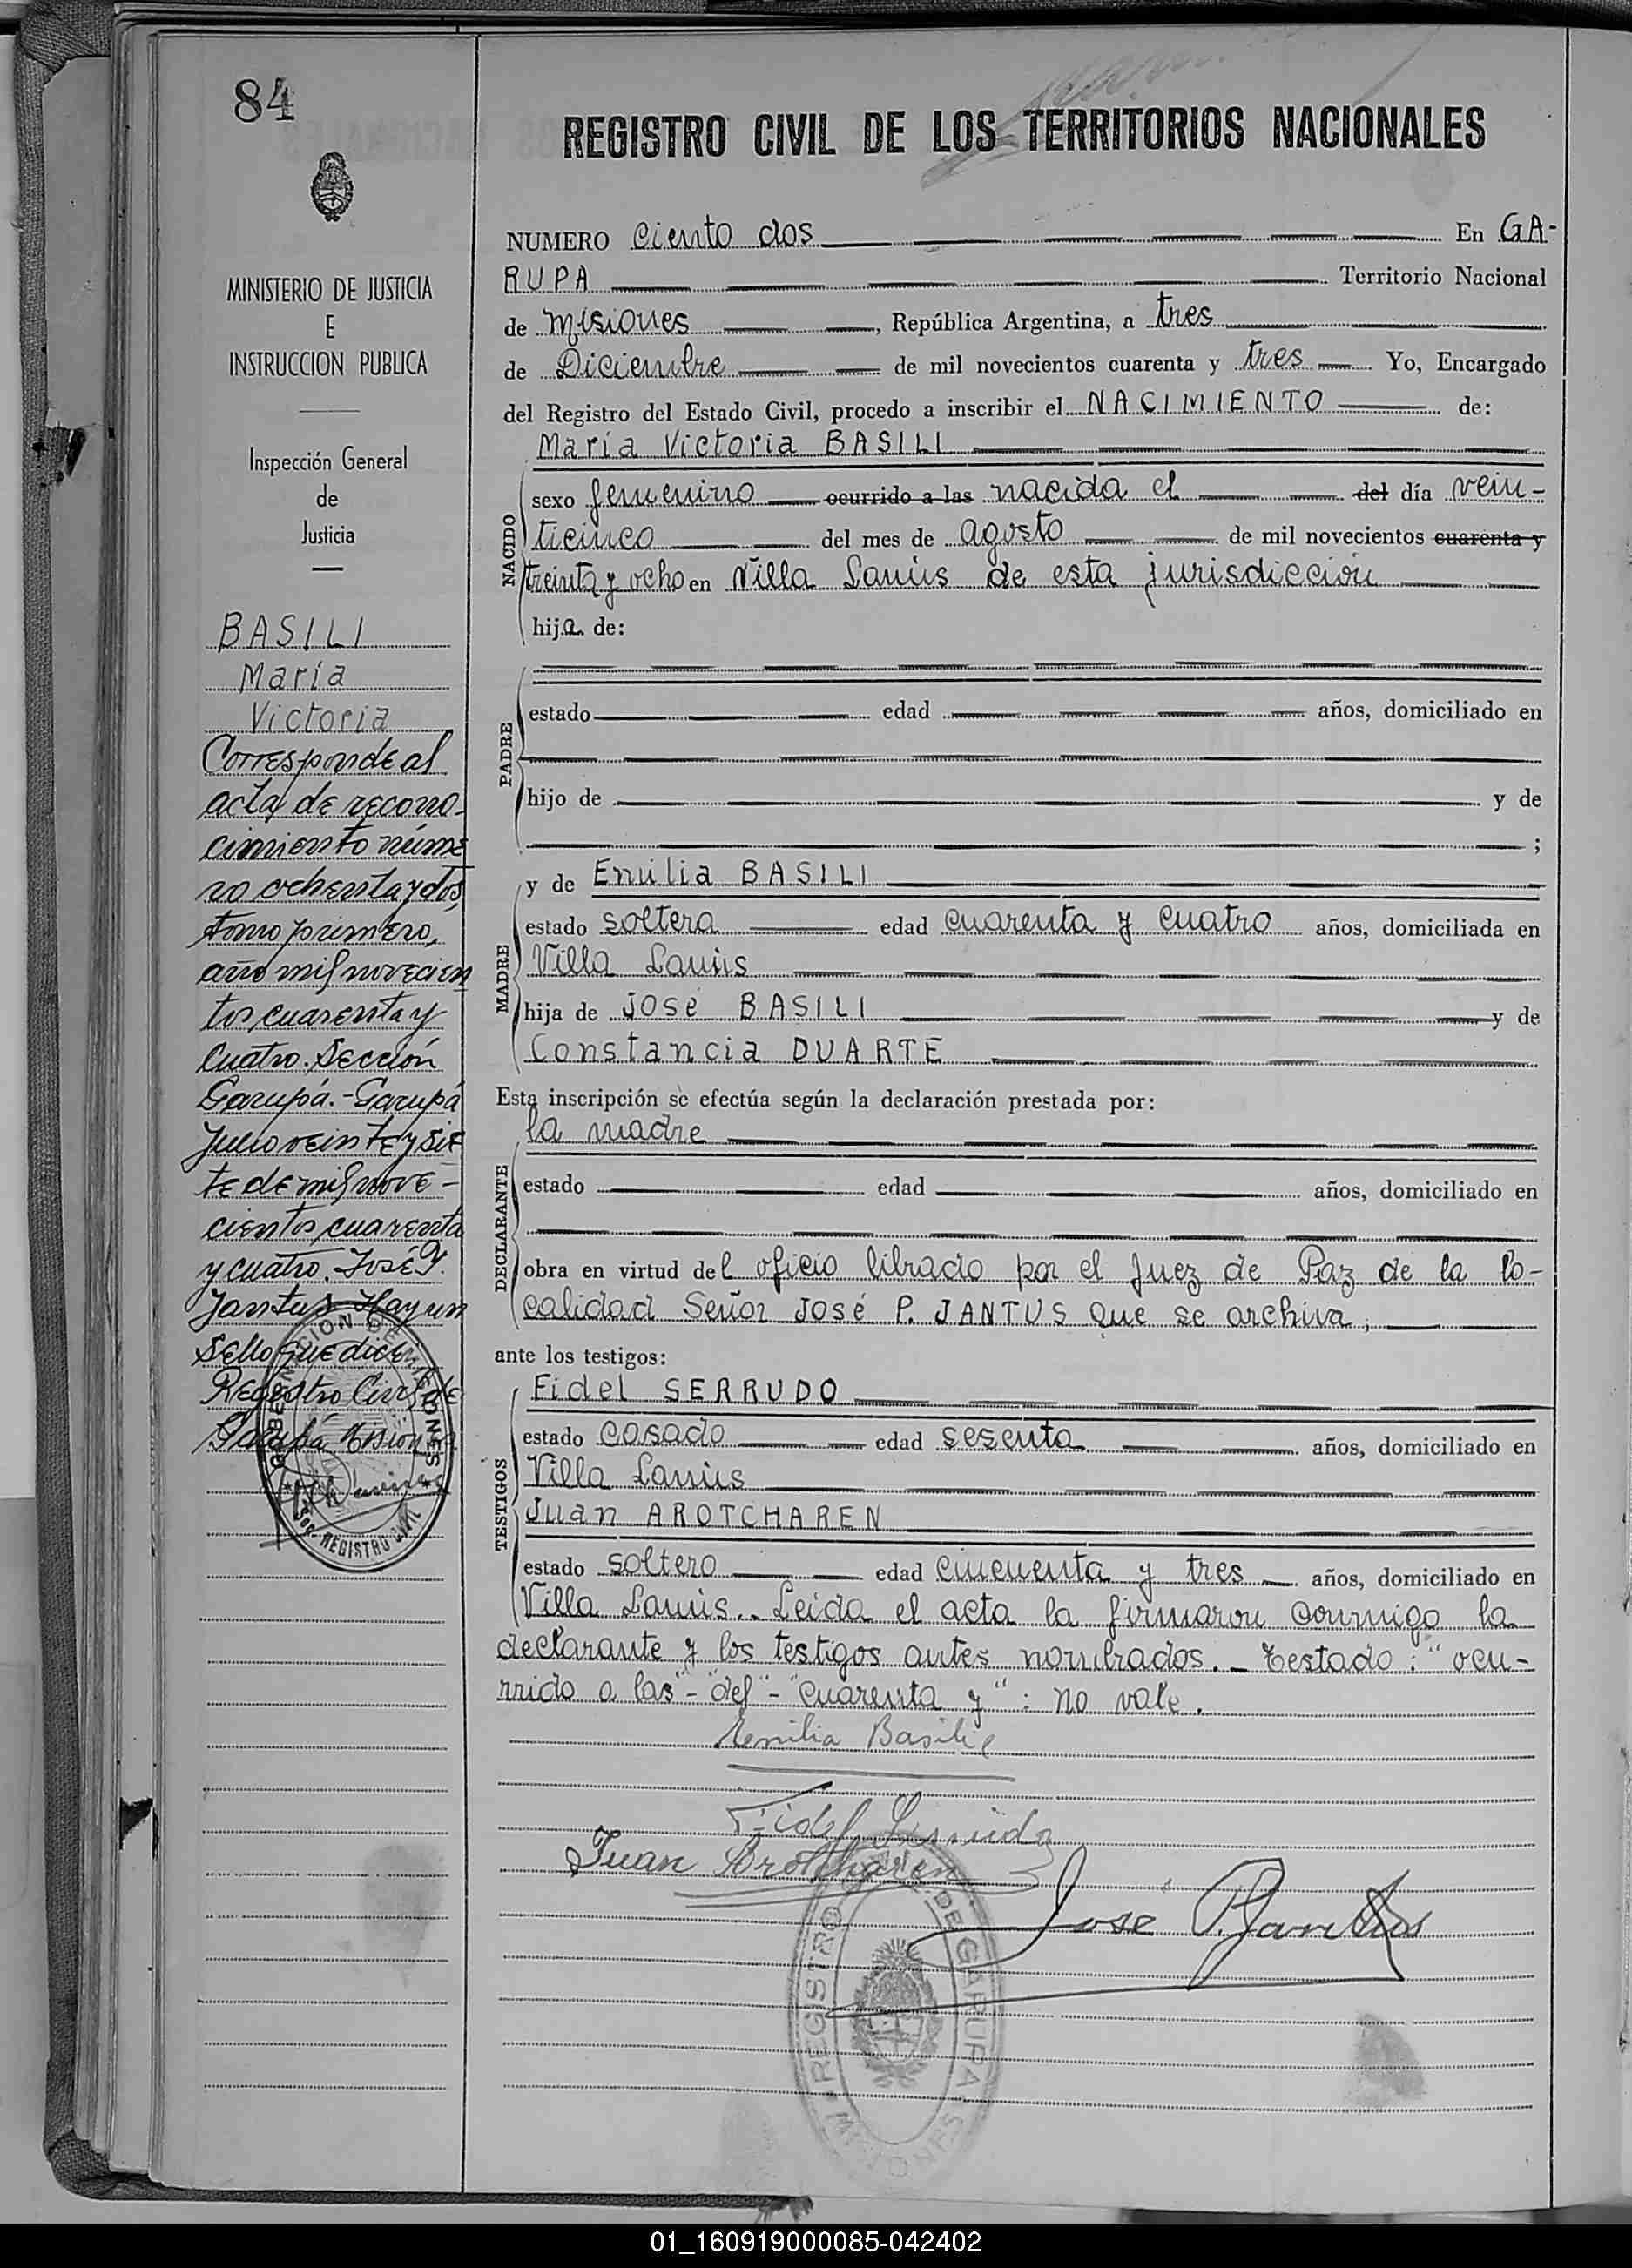 84
MINISTERIO DE JUSTICIA
E
INSTRUCCION PUBLICA
Inspección General
de
Justicia
BASILI
María
Victoria
Corresponde al
acta de recono-
cimiento núme
ro ochenta y dos,
tomo primero,
año mil novecien
tos cuarenta y
cuatro. Sección
Garupá.-Garupá
Julio veinte y sie
te de mil nove-
cientos cuarenta
y cuatro. José P.
Jantus Hay un
Sello que dice
Registro Civil de
Garupá Misiones
GOBERNACION DE MISIONES
REGISTRO CIVIL
REGISTRO CIVIL DE LOS TERRITORIOS NACIONALES
NUMERO Ciento dos En GA-
RUPA Territorio Nacional
de Misiones, República Argentina, a tres
de Diciembre de mil novecientos cuarenta y tres Yo, Encargado
del Registro del Estado Civil, procedo a inscribir el NACIMIENTO de:
María Victoria BASILI
NACIDO
sexo femenino ocurrido a las nacida el del día vein-
ticinco del mes de agosto de mil novecientos cuarenta y
treinta y ocho en Villa Lanús de esta jurisdicción
hija de:
PADRE
estado edad años, domiciliado en
hijo de y de
;
y de Emilia BASILI
MADRE
estado soltera edad cuarenta y cuatro años, domiciliada en
Villa Lanús
hija de José BASILI y de
Constancia DUARTE
Esta inscripción se efectúa según la declaración prestada por:
la madre
DECLARANTE
estado edad años, domiciliado en
obra en virtud del oficio librado por el Juez de Paz de la lo-
calidad Señor José P. JANTUS que se archiva;
ante los testigos:
Fidel SERRUDO
TESTIGOS
estado casado edad sesenta años, domiciliado en
Villa Lanús
Juan AROTCHAREN
estado soltero edad cincuenta y tres años, domiciliado en
Villa Lanús.- Leída el acta la firmaron conmigo la
declarante y los testigos antes nombrados.- Testado: "ocu-
rrido a las"-"del"-"cuarenta y": no vale.
Emilia Basili
Fidel Serrudo
Juan Arotcharen
José P. Jantus
REGISTRO DE GARUPA
MISIONES
01_160919000085-042402